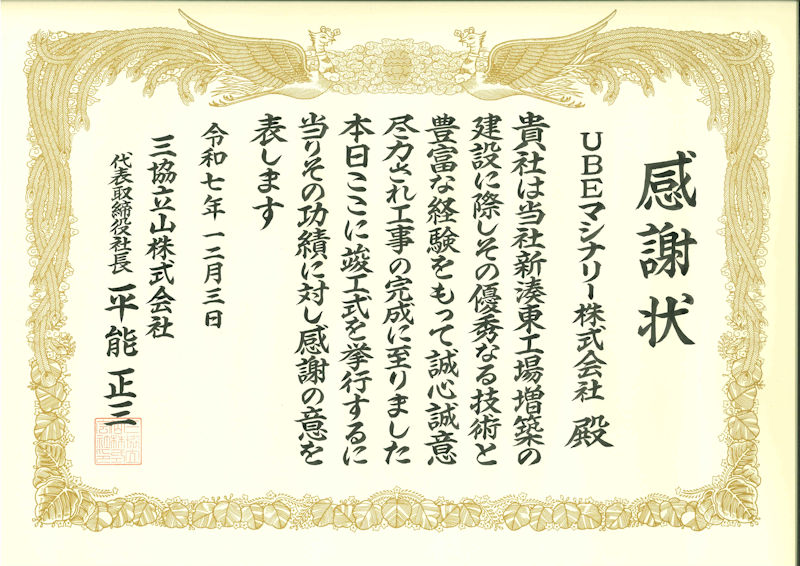 感謝状
UBEマシナリー株式会社 殿
貴社は当社新湊東工場増築の
建設に際しその優秀なる技術と
豊富な経験をもって誠心誠意
尽力され工事の完成に至りました
本日ここに竣工式を挙行するに
当りその功績に対し感謝の意を
表します
令和七年 一二月三日
三協立山株式会社
代表取締役社長 平能 正三